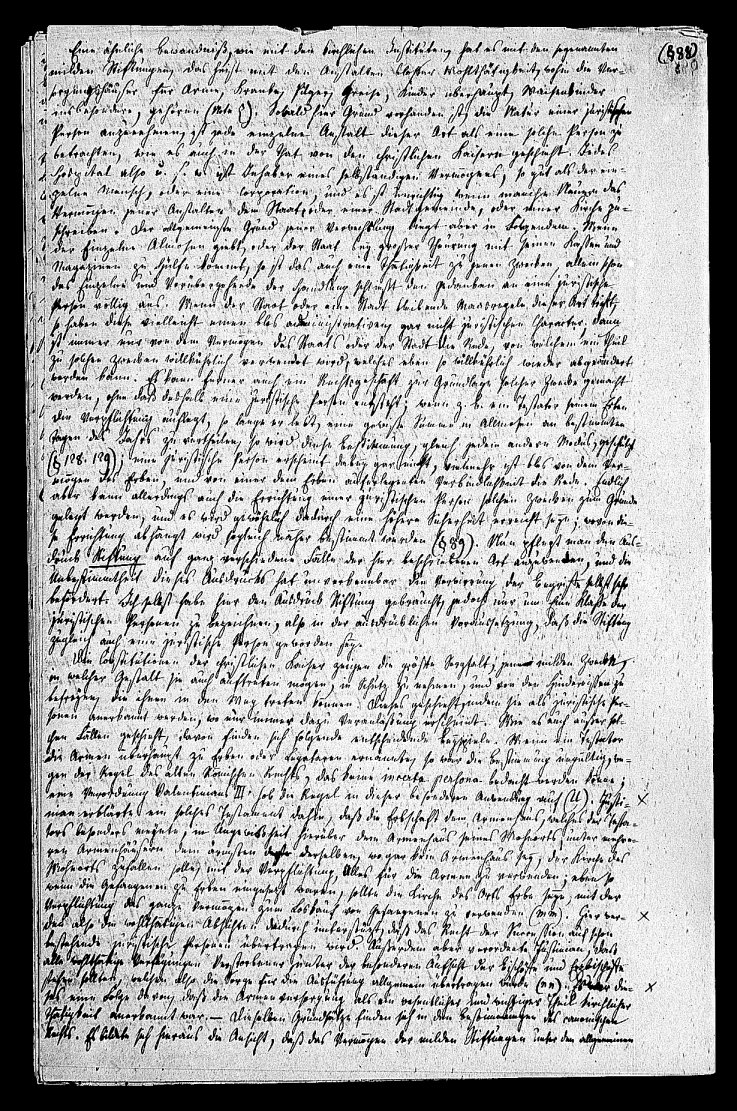 (§88)
Eine ähnliche Bewandniß, wie mit den kirchlichen Instituten, hat es mit den sogenannten
milden Stiftungen, das heist mit den Anstalten bloßer Wohlthätigkeit, wohin die Ver-
sorgungshäuser für Arme, Kranke, Pilger, Greise, Kinder überhaupt, Waisenkinder
insbesondere, gehören (Note). Sobald hier Grund vorhanden ist, die Natur einer juristischen
Person anzunehmen, ist jede einzelne Anstalt dieser Art als eine solche Person zu
betrachten, wie es auch in der That von den christlichen Kaisern geschieht. Jedes
Hospital also u. s. w. ist Inhaber eines selbstständigen Vermögens, so gut als der ein-
zelne Mensch, oder eine Corporation, und es ist unrichtig wenn manche Neuern das
Vermögen jener Anstalten dem Staat, oder einer Stadtgemeinde, oder einer Kirche zu-
schreiben. Der allgemeinste Grund jener Verwechslung liegt aber in Folgendem. Wenn
der Einzelne Almosen giebt, oder der Staat bey großer Theurung mit seinen Kassen und
Magazinen zu Hülfe kommt, so ist das auch eine Thätigkeit zu jenen Zwecken, allein schon
das Einzelne und Vorübergehende der Handlung schließt den Gedanken an eine juristische
Person völlig aus. Wenn der Staat oder eine Stadt bleibende Maasregeln dieser Art trifft,
so haben diese vielleicht einen blos administrativen, gar nicht juristischen Character, dann
ist immer nur von dem Vermögen des Staats oder der Stadt die Rede, von welchem ein Theil
zu solchen Zwecken willkührlich verwendet wird, welches eben so willkührlich wieder abgeändert
werden kann. Es kann ferner auch ein Rechtsgeschäft zur Grundlage solcher Zwecke gemacht
werden, ohne daß deshalb eine juristische Person entsteht; wenn z. B. ein Testator seinem Erben
die Verpflichtung auflegt, so lange er lebt, eine gewisse Summe in Almosen an bestimmten
Tagen des Jahrs zu vertheilen, so wird diese Bestimmung, gleich jedem andern Modus, geschützt
(§ 128. 129); eine juristische Person erscheint dabey gar nicht, vielmehr ist blos von dem Ver-
mögen des Erben, und von einer dem Erben auferlegten Verbindlichkeit die Rede. Endlich
aber kann allerdings auch die Errichtung einer juristischen Person solchen Zwecken zum Grunde
gelegt werden, und es wird gewöhnlich dadurch eine höhere Sicherheit erreicht seyn; wovon die-
se Errichtung abhängt wird sogleich näher bestimmt werden (§ 89). Nun pflegt man den Aus-
druck Stiftung auf ganz verschiedene Fälle der hier beschriebenen Art anzuwenden, und die
Unbestimmtheit dieses Ausdrucks hat unverkennbar die Verwirrung der Begriffe selbst sehr
befördert. Ich selbst habe hier den Ausdruck Stiftung gebraucht, jedoch nur, um eine Klasse der
juristischen Personen zu bezeichnen, also in der ausdrücklichen Voraussetzung, daß die Stiftung
zugleich auch eine juristische Person geworden sey.
Die Constitutionen der christlichen Kaiser zeigen die größte Sorgfalt, jene milden Zwecke,
in welcher Gestalt sie auch auftreten mögen, in Schutz zu nehmen, und von den Hindernissen zu
befreyen, die ihnen in den Weg treten können. Dieses geschieht, indem sie als juristische Per-
sonen anerkannt werden, wo nur immer dazu Veranlassung erscheint. Wie es auch außer sol-
chen Fällen geschieht, davon finden sich folgende entscheidende Beyspiele. Wenn ein Testator
die Armen überhaupt zu Erben oder Legataren ernannte, so war die Bestimmung ungültig, we-
gen der Regel des alten Römischen Rechts, daß keine incerta persona bedacht werden könne;
eine Verordnung Valentinians III. hob die Regel in dieser besondern Anwendung auf (ll). Justi- x
nian erklärte ein solches Testament dahin, daß die Erbschaft dem Armenhaus, welches der Testa-
tor besonders meynte, in Ungewißheit hierüber dem Armenhaus seines Wohnorts, unter mehre-
ren Armenhäusern dem ärmsten derselben, wo gar kein Armenhaus sey, der Kirche des
Wohnorts zufallen solle, mit der Verpflichtung, Alles für die Armen zu verwenden; eben so
wenn die Gefangenen zu Erben eingesetzt waren, sollte die Kirche des Orts Erbe seyn, mit der
Verpflichtung das ganze Vermögen zum Loskauf von Gefangenen zu verwenden (mm). Hier wer- x
den also die wohlthätigen Absichten dadurch unterstützt, daß das Recht der Succession auf schon
bestehende juristische Personen übertragen wird. Außerdem aber verordnete Justinian, daß
alle wohlthätige Verfügungen Verstorbener hinter der besonderen Aufsicht der Bischöfe und Erzbischöfe
stehen sollten, welchen also die Sorge für die Ausführung allgemein übertragen wurde (nn). Es war die- x
ses eine Folge davon, daß die Armenversorgung als ein wesentlicher und wichtiger Theil kirchlicher
Thätigkeit anerkannt war. — Dieselben Grundsätze finden sich in den Bestimmungen des canonischen
Rechts. Es bildete sich hieraus die Ansicht, daß das Vermögen der milden Stiftungen unter den allgemeinen